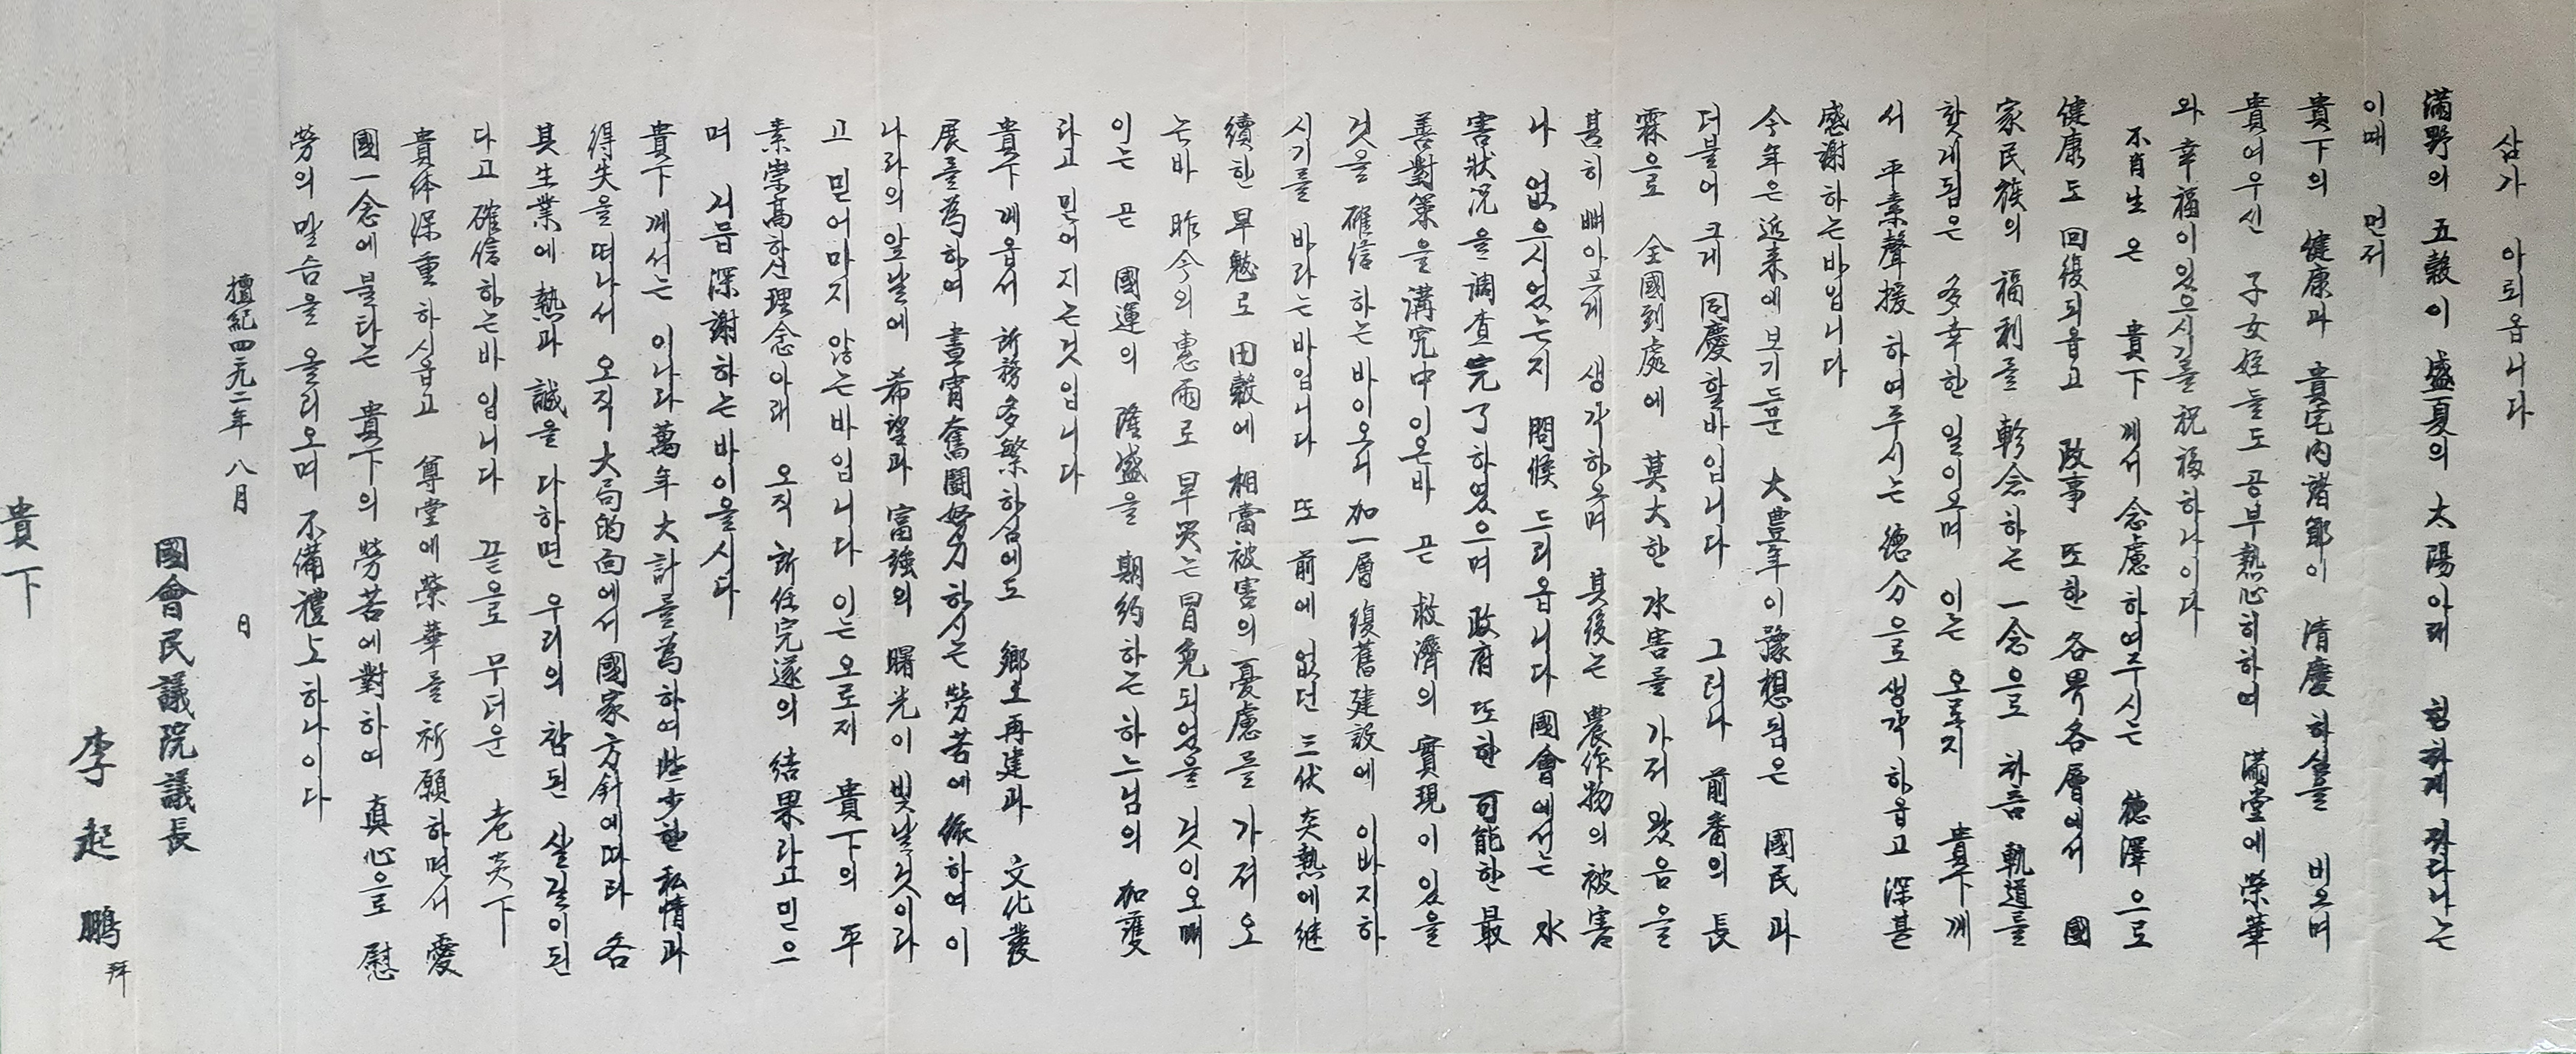 삼가 아뢰옵니다
滿野의 五穀이 盛夏의 太陽아래 힘차게 자라나는
이때 먼저
貴下의 健康과 貴宅內諸節이 清慶하심을 비오며
貴여우신 子女姪들도 공부熱心히하며 滿堂에 榮華
와 幸福이있으시기를 祝福하나이다
不肖生은 貴下께서 念慮하여주시는 德澤으로
健康도 回復되옵고 政事 또한 各界各層에서 國
家民族의 福利를 軫念하는 一念으로 차츰 軌道를
찾게됨은 多幸한 일이오며 이는 오로지 貴下께
서 平素聲援하여주시는 德分으로생각하옵고 深甚
感謝하는바입니다
今年은 近來에보기드문 大豊年이豫想됨은 國民과
더불어 크게 同慶할바입니다 그러나 前番의 長
霖으로 全國到處에 莫大한 水害를 가저왔음을
甚히 뼈아프게 생각하오며 其後는 農作物의 被害
나 없으시었는지 問候드리옵니다 國會에서는 水
害狀況을 調査完了하였으며 政府 또한 可能한 最
善對策을 講究中이온바 곧 救濟의 實現이있을
것을 確信하는바이오니 加一層 復舊建設에 이바지하
시기를 바라는바입니다 또 前에 없던 三伏炎熱에継
續한 旱魃로 田穀에 相當被害의 憂慮를 가져오
는바 昨今의 惠雨로 旱災는 冒免되었을 것이오며
이는 곧 國運의 隆盛을 期約하는 하느님의 加護
라고 믿어지는것입니다
貴下께옵서 所務多繁하심에도 鄕土再建과 文化發
展을爲하여 晝宵奮鬪努力하시는 勞苦에 依하여 이
나라의 앞날에 希望과 富强의 曙光이 빛날것이라
고 믿어마지 않는바입니다 이는오로지 貴下의 平
素崇高하신理念아래 오직 所任完遂의 結果라고믿으
며 거듭深謝하는바이올시다
貴下께서는 이나라萬年大計를爲하여些少한私情과
得失을떠나서 오직 大局的面에서 國家方針에따라 各
其生業에 熱과 誠을 다하면 우리의 참된 살길이된
다고 確信하는바입니다 끝으로 무더운 老炎下
貴体深重하시옵고 尊堂에榮華를 祈願하면서 愛
國一念에불타는 貴下의 勞苦에對하여 眞心으로 慰
勞의말씀을 올리오며 不備禮上하나이다
檀紀四二九二年 八月 日
國會民議院議長
李起鵬 拜
貴下